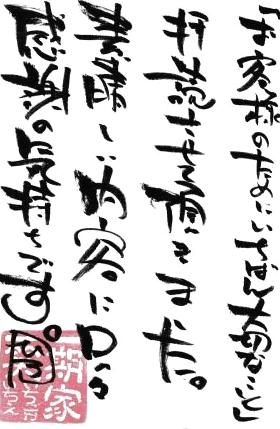 「お客様のためにいちばん大切なこと」
拝読させて頂きました。
素晴しい内容に日々
感謝の気持ちです。